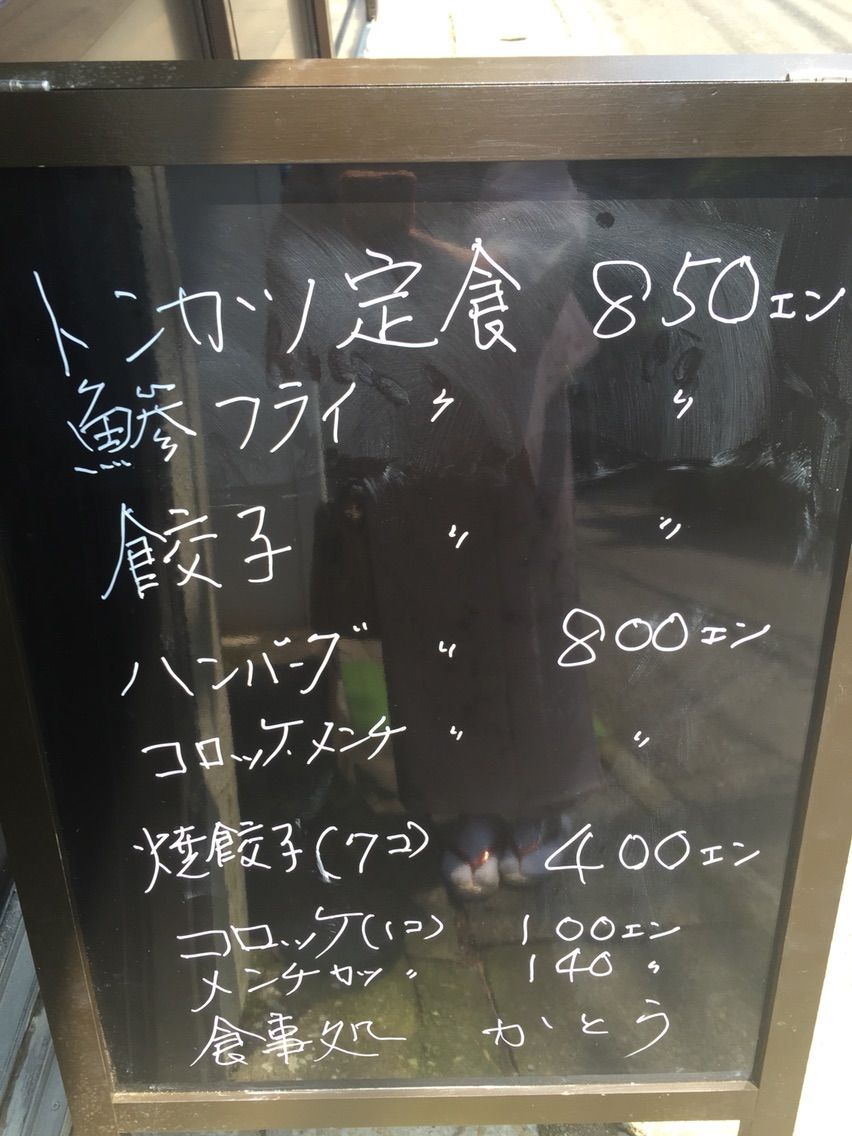 トンカツ定食 850エン
鯵フライ 〃 〃
餃子 〃 〃
ハンバーグ 〃 800エン
コロッケ.メンチ 〃 〃
焼餃子(7コ) 400エン
コロッケ(1コ) 100エン
メンチカツ 〃 140 〃
食事処 かとう